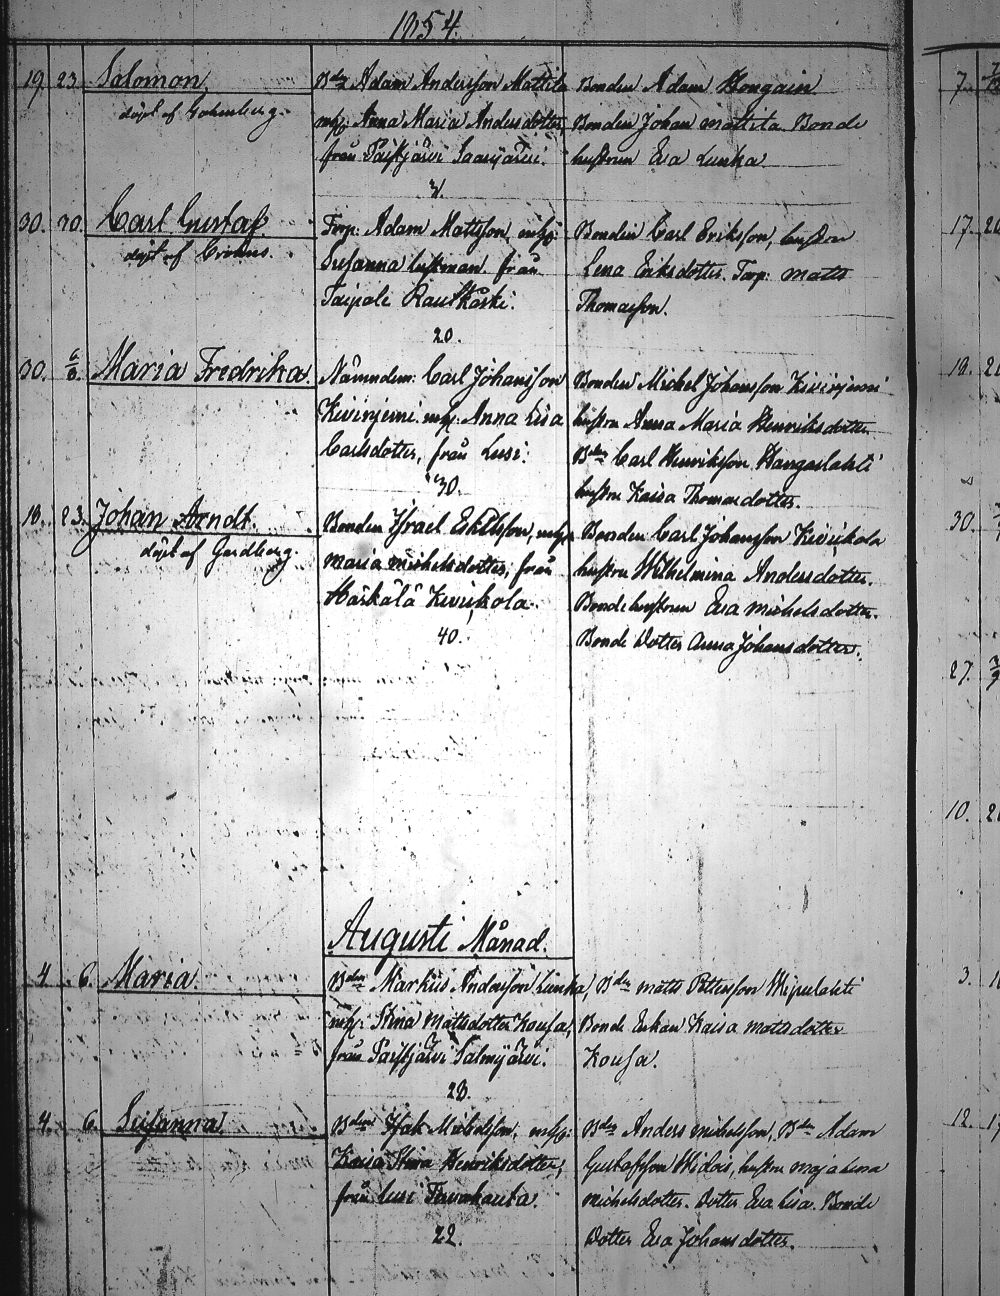 1854.
19. 23. Salomon,
döpt af
Bdn Adam Andersson Mattila
mhu: Anna Maria Andersdotter,
från Paistjärvi Saarijärvi.
Bonden Adam Hongain
Bonden Johan Mattila. Bonde
hustrun Eva Lunka
30. 30. Carl Gustaf
döpt af
Torp. Adam Mattsson, mhu:
Susanna Lustman. från
Taipale Rautkoski.
20.
Bonden Carl Eriksson, hustru
Lena Eriksdotter. Torp. Matts
Thomasson.
30. 6/8. Maria Fredrika.
Nämndem: Carl Johansson
Kivinjemi. mhu. Anna Lisa
Carlsdotter, från Lusi.
30.
Bonden Michel Johansson Kivinjemi
hustru Anna Maria Henriksdotter.
Bdn Carl Henriksson Hangaslahti
hustru Kaisa Thomasdotter.
18. 23. Johan Arndt.
döpt af Gardberg.
Bonden Israel Eriksson, mhu
Maria Michelsdotter, från
Härkälä Kivikola.
40.
Bonden Carl Johansson Kivikola
hustru Wilhelmina Andersdotter.
Bonde hustrun Eva Michelsdotter.
Bonde Dotter Anna Johansdotter.
Augusti Månad.
4. 6. Maria.
Bdn Markus Andersson Lunka,
mhu: Stina Mattsdotter Kousa,
från Paistjärvi Salmijärvi.
28.
Bdn Matts Pettersson
Bonde Enkan Kaisa Mattsdotter
Kousa.
4. 6. Susanna
Bdn Isak Michelsson, mhu:
Kaisa Stina Henriksdotter,
från Lusi
22.
Bdn Anders Michelsson, Bdn Adam
Gustafsson hustru Maja Lena
Michelsdotter. Dotter Eva Lisa. Bonde
Dotter Eva Johansdotter.
7.
17.
18.
30.
27.
10.
3.
12.